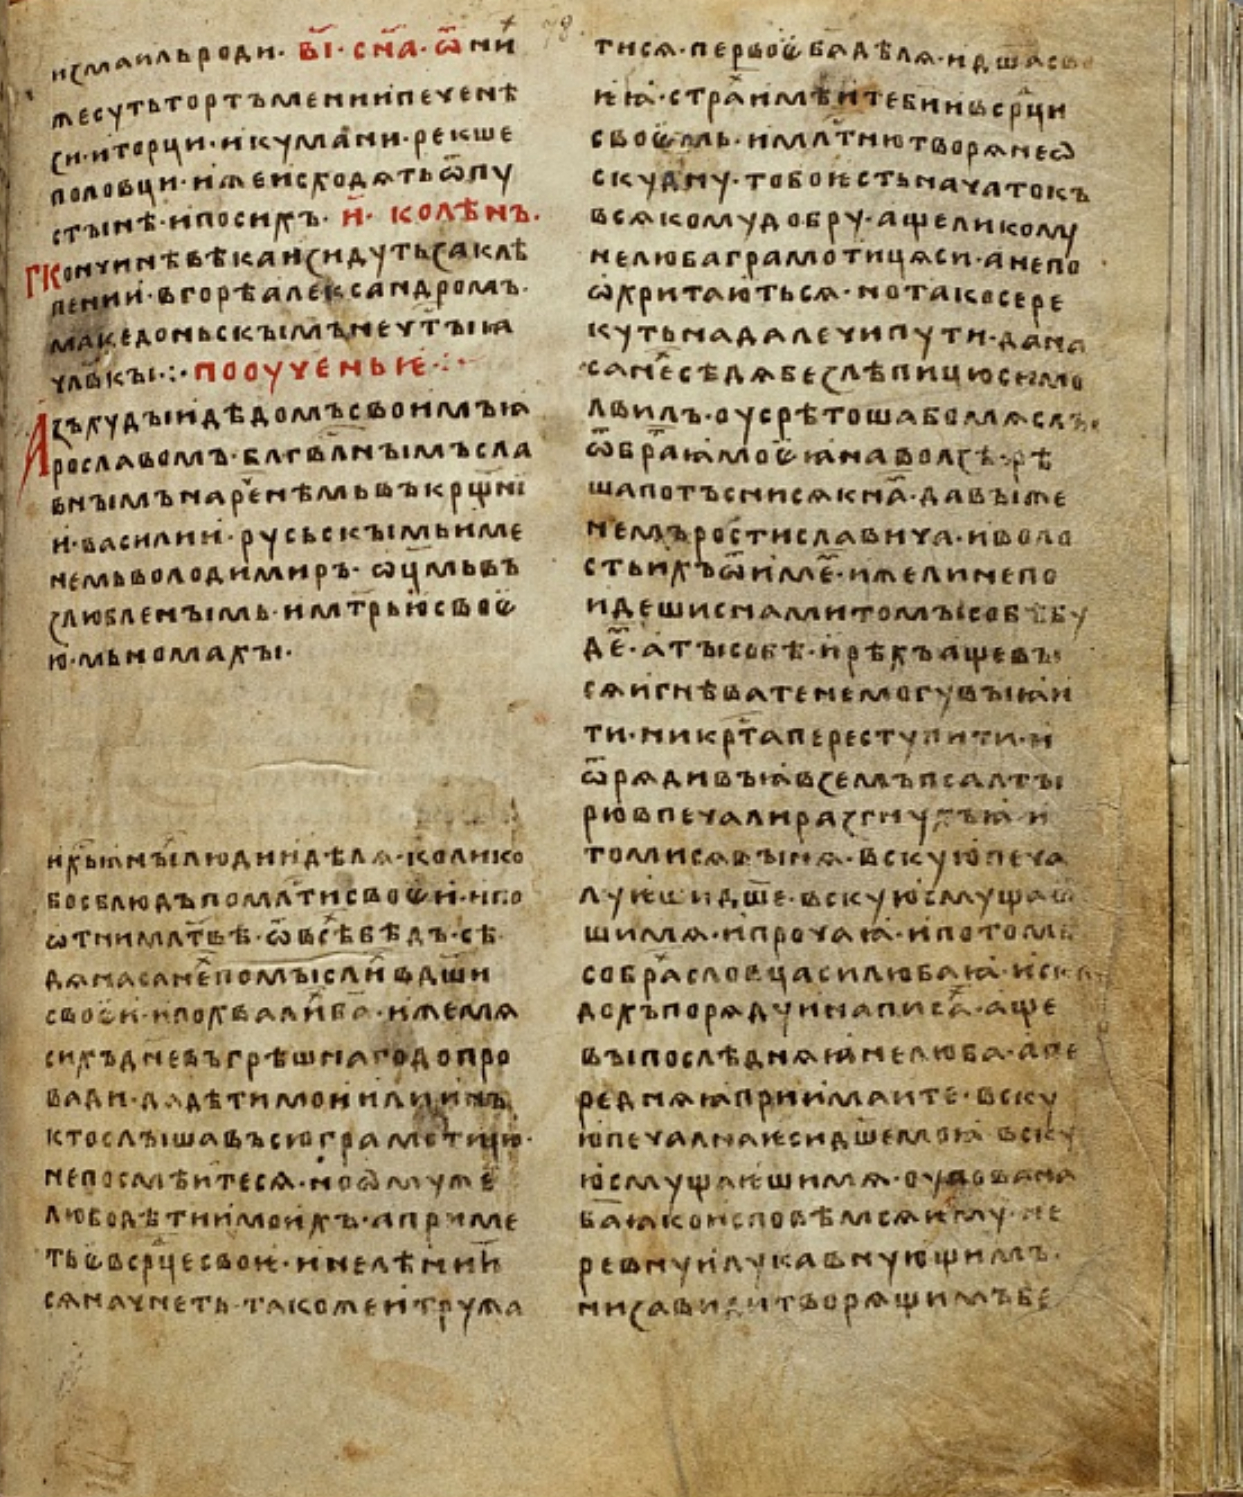 исмаильроди· в҃і·сн҃а·ѿни
жесутьтортъменииипеченѣ
си·иторци·икумани·рекше
половци·ижеисходѧтьѿпу
стынѣ·ипосихъ·и҃·колѣнъ·
кончинѣвѣкаизидутьзаклѣ
пении·вгорѣалександромъ·
македоньскымънечт҃ыꙗ
члв҃кы·:·пооученьѥ·:·
Азъхудыидѣдомъсвоимъꙗ
рославомъ·блгвл҃нымъсла
внымънаре҇нѣмьвъкрщ҃ні
и·василии·русьскымьиме
немьволодимиръ·ѡц҃мьвъ
злюбленымь·имт҃рьюсвоє
ю·мьномахы·
ихрьꙗны҇людиидѣлѧ·колико
босблюдъпомлт҃исвоєи·ипо
ѡтнимлт҃вѣ·ѿвсѣ҇бѣдъ·сѣ
дѧнасане҇помыслихвдш҃и
своєи·ипохвалихба҃·ижемѧ
сихъдневъгрѣшнагодопро
вади·дадѣтимоиилиинъ
ктослышавъсюграмотицю·
непосмѣитесѧ·ноѿмуже
любодѣтиимоихъ·априме
тьєвсрц҃есвоѥ·инелѣних
сѧначнеть·такожеитружа
тисѧ·первоєба҃дѣлѧ·идш҃асво
ѥꙗ·стра҇имѣитеби҃ивсрц҃и
своємь·имлт҃нютворѧнеѡ
скудну·тобоѥстьначатокъ
всѧкомудобру·ащеликому
нелюбаграмотицѧси·анепо
ѡхритаютьсѧ·нотакосере
кутьнадалечипути·дана
сане҇сѣдѧбезлѣпицюсимо
лвилъ·оусрѣтошабомѧслъ
ѿбра҃ꙗмоєꙗнаволзѣ·рѣ
шапотъснисѧкна҃·давыже
немъростиславича·иволо
стьихъѿиме҃·ижелинепо
идешиснамитомысобѣбу
де҃·атысобѣ·ирѣхъащевы
сѧигнѣватенемогувыꙗи
ти·никрт҃апереступити·и
ѿрѧдивъꙗвземъпсалты
рювпечалиразгнухъꙗ·и
томисѧвынѧ·вскуюпеча
луѥшидш҃е·вскуюсмущає
шимѧ·ипрочаꙗ·ипотомь
собра҇словцасилюбаꙗ·искла
дохъпорѧдуинаписа҇·аще
выпослѣднѧꙗнелюба·апе
реднѧꙗприимаите·вску
юпечалнаѥсидш҃емоꙗ·вску
юсмущаѥшимѧ·оуповаина
ба҃ꙗкоисповѣмсѧѥму·не
ревнуилукавнующимъ·
низавидитворѧщимъбе